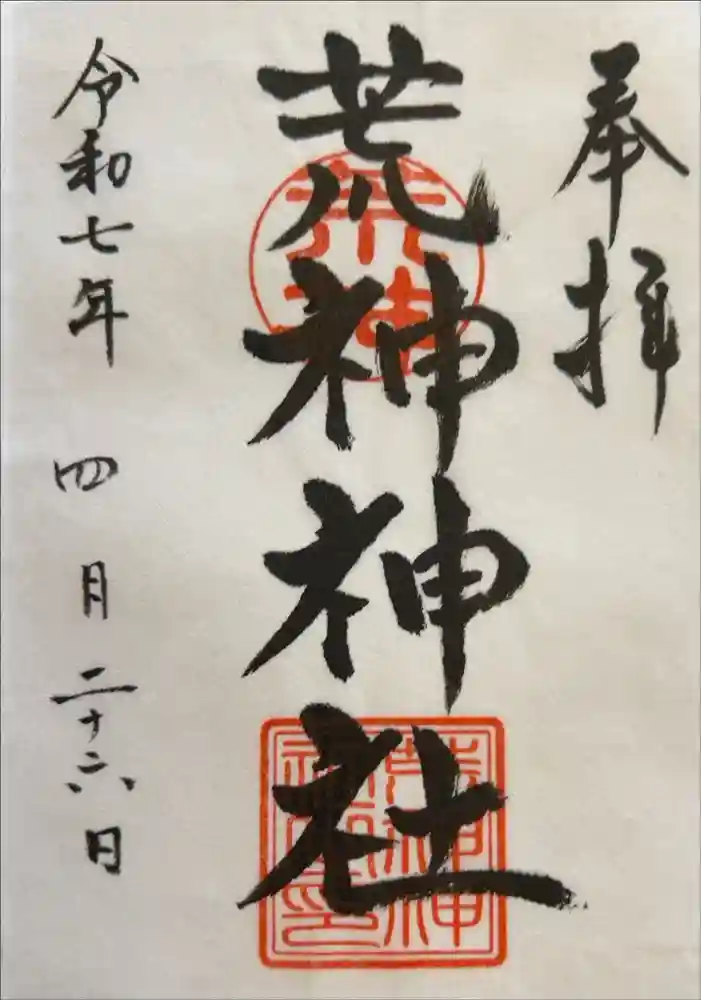 奉拝
荒神
荒神神社
荒神神
社之印
令和七年 四月二十六日